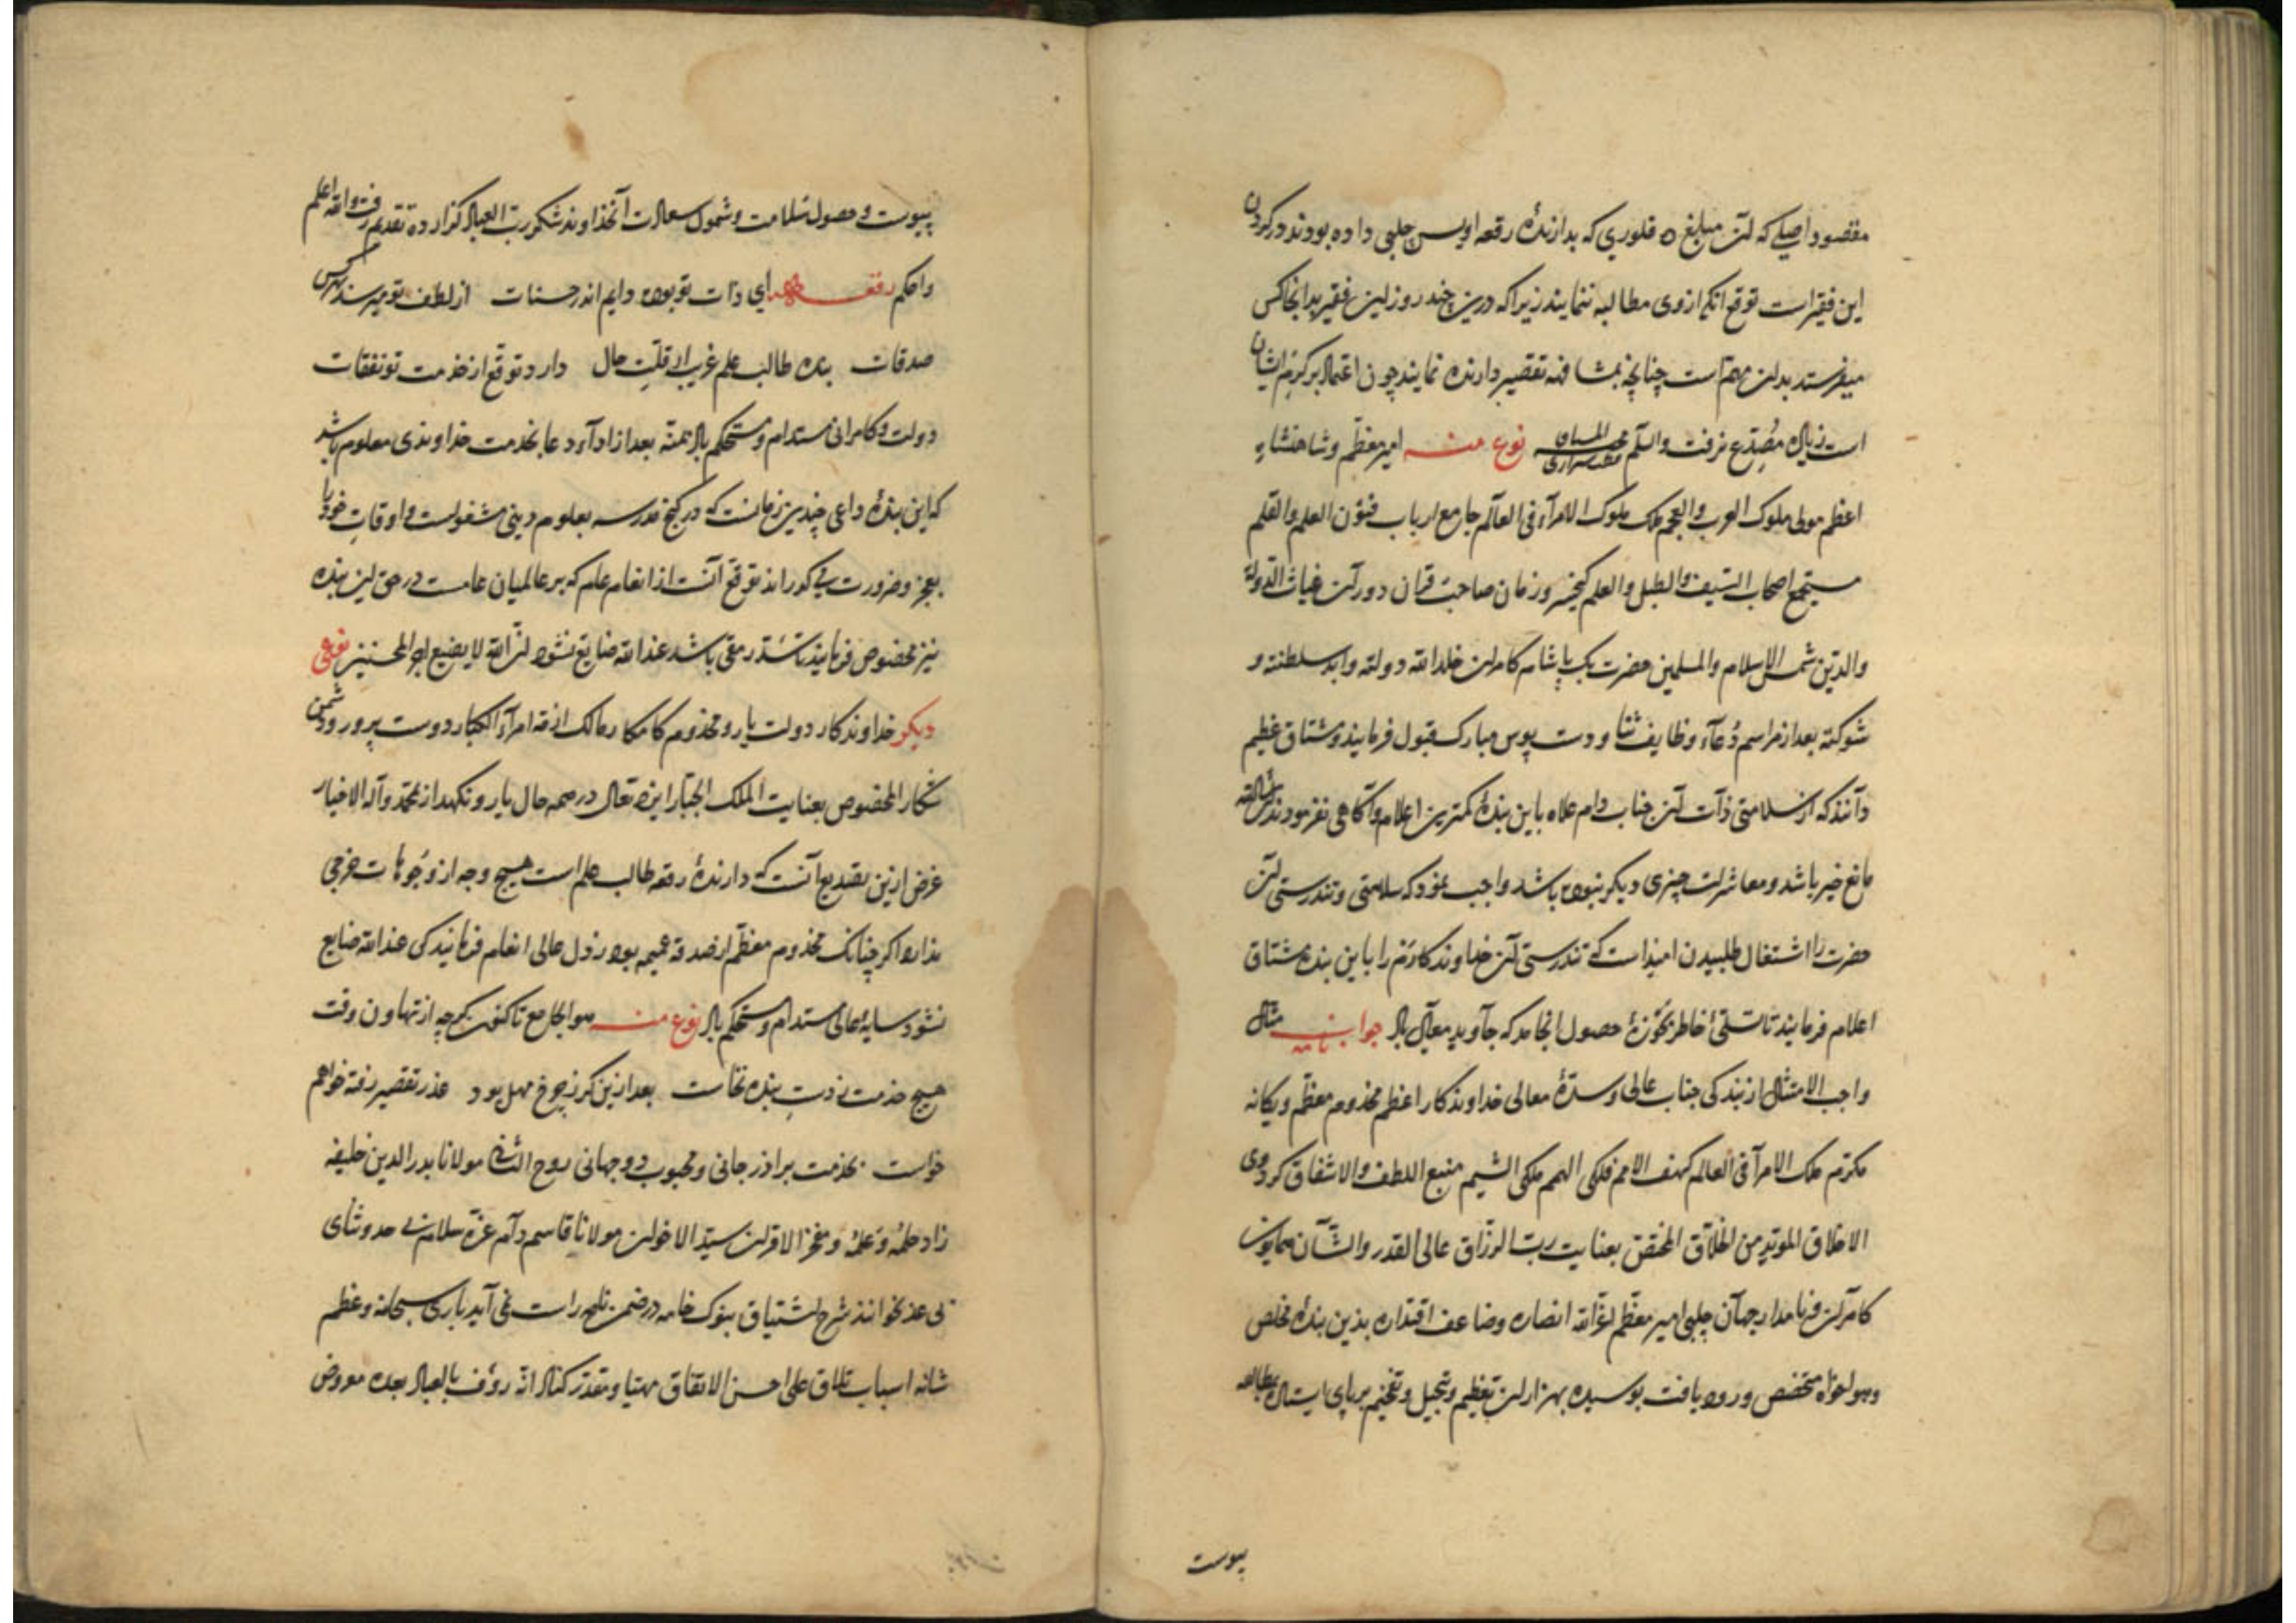 مقصود اصلی که آن مبلغ ۵ فلوری که بدارندهٔ رقعه اویس چلبی داده بودند در کردن
این فقیر است توقع آنکه از وی مطالبه ننمایند زیرا که درین چند روز این فقیر بدانجا کس
میفرستد بدان مهم است چنانچه بمشافهه تقصیر دارنده نمایند چون اعتماد بر کرم ایشان
است زیاده مصدع نرفت والسلم نوع منه امیر معظم و شاهنشاه
اعظم مولی ملوک العرب والعجم ملک ملوک الامرآء فی العالم جامع ارباب فنون العلم والقلم
مستجمع اصحاب السیف والطبل والعلم کیخسرو زمان صاحب قران دوران غیاث الدولة
والدین شمس الاسلام والمسلمین حضرت بک پاشاه کامران خلد الله دولته وابد سلطنته و
شوکته بعد از مراسم دعآء و وظایف ثنا و دست بوس مبارک قبول فرمایند و مشتاق عظیم
دانند که از سلامتی ذات آن جناب دام علاه باین بندهٔ کمترین اعلام و آگاهی نفرمودند ان شاالله
مانع خیر باشد و معاشرات چیزی دیگر نبوده باشد واجب نمود که سلامتی و تندرستی آن
حضرت را اشتغال طلبیدن امیداست که تندرستی آن خداوندکارم را باین بنده مشتاق
اعلام فرمایند تا تسلئ خاطر محزون حصول انجامد که جاوید معالی باد جواب نامه مثال
واجب الامتثال از بندگی جناب عالی و سدهٔ معالی خداوندکار اعظم مخدوم معظم و یگانه
مکرم ملک الامرآء فی العالم کهف الامم فلکی الهمم ملکی الشیم منبع اللطف والاشفاق کردوی
الاخلاق المؤید من الخلاق المختص بعنایت رب الرزاق عالی القدر والشان همایون
کامران فرمامدار جهان چلبی امیر معظم اعز الله انصاره وضاعف اقتداره بذین بندهٔ مخلص
و هواخواه متخصص ورود یافت بوسیده بهزاران تعظیم و تبجیل و تفخیم بر پای ایستاده بمطالعه
پیوست
پیوست و حصول سلامت و شمول سعادت آن خداوند شکر رب العباد گزارده تقدیم رفت والله اعلم
واحکم رقعه ای ذات تو بوده دایم اندر حسنات از لطف تو میرسد بهر کس
صدقات بنده طالب علم غریب از قلت مال دارد توقع از خدمت تو نفقات
دولت و کامرانی مستدام و مستحکم باد بمنه بعد از ادآء دعا بخدمت خداوندی معلوم باشد
که این بندهٔ داعی چندین زمانست که در کنج مدرسه بعلوم دینی مشغولست و اوقات خود را
بعجز و ضرورت می گذراند توقع آنست از انعام عام که بر عالمیان عامست در حق این بنده
نیز مخصوص فرمایند تا سد رمقی باشد عند الله ضایع نشود ان الله لا یضیع اجر المحسنین نوعی
دیگر خداوندکار دولت یار و مخدوم کامکار مالک ازمة امرآء الکبار دوست پرور و دشمن
شکار المخصوص بعنایت الملک الجبار ایزد تعالی در همه حال یار و نگهدار بمحمد وآله الاخیار
غرض ازین تصدیع آنست که دارندهٔ رقعه طالب علم است هیچ وجه از وجوهات خرجی
ندارد اگر چنانک مخدوم معظم از صدقهٔ عمیمه بوده رذل عالی انعام فرمایند کی عند الله ضایع
نشود سایهٔ عالی مستدام و مستحکم باد نوع منه هو الجامع تا کنون گرچه از تهاون وقت
هیچ خدمت ز دست بنده نخاست بعد ازین گر ز چرخ مهل بود عذر تقصیر رفته خواهم
خواست بخدمت برادر جانی و محبوب دوجهانی روح الثانی مولانا بدرالدین خلیفه
زاد حلمه و علمه و مفخر الاقران سید الاخوان مولانا قاسم دام عزه سلام بی حد و ثنای
بی عد بخوانند شرح اشتیاق بنوک خامه در ضمن نامه راست نمی آید باری سبحانه وعظم
شانه اسباب تلاق علی احسن الاتفاق مهیا و مقدر کناد انه رؤف بالعباد بعده معروض